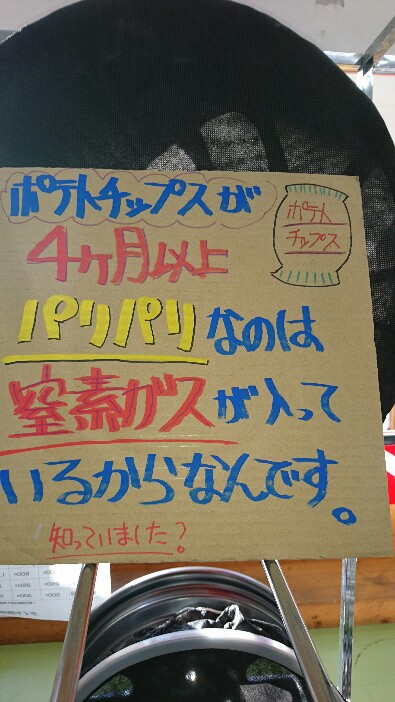 ポテトチップスが
4ヶ月以上
パリパリなのは
窒素ガスが入って
いるからなんです。
知っていました?
ポテト
チップス